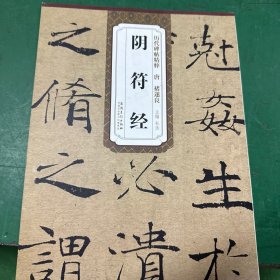 历代碑帖精粹 唐 褚遂良
阴符经
尅
姦生
於
必潰
之脩之
謂